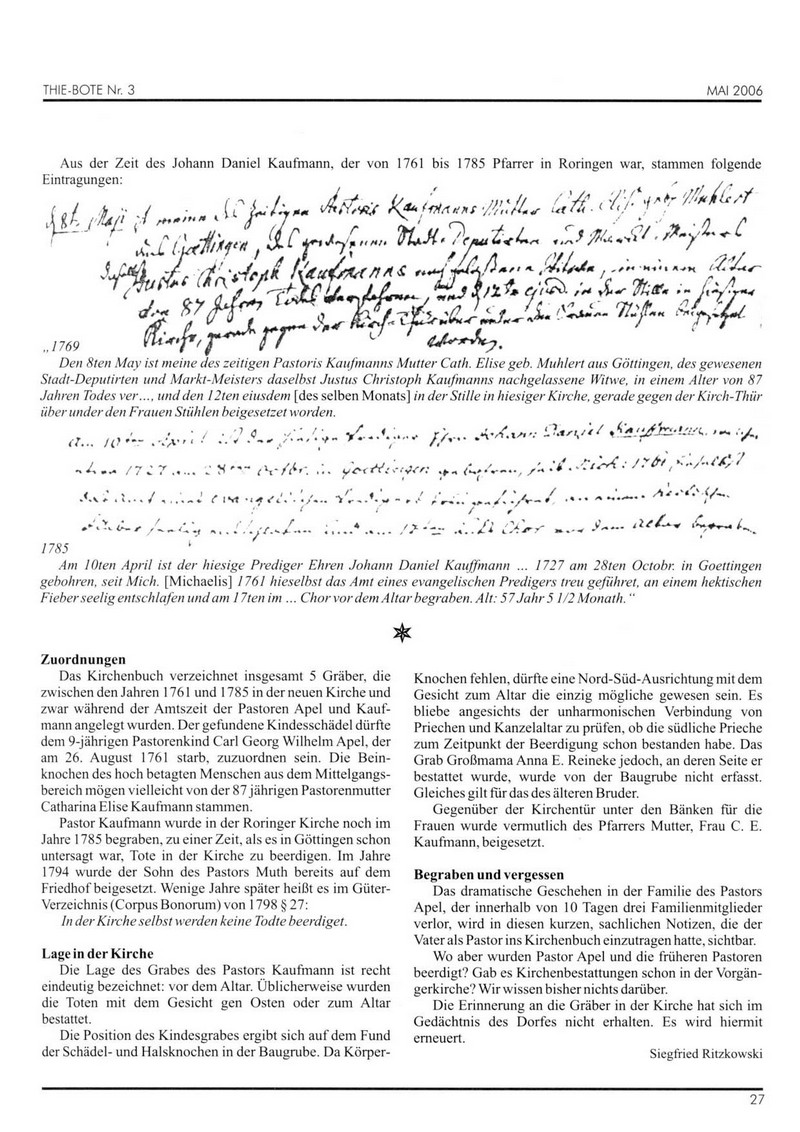 THIE-BOTE Nr. 3
MAI 2006
Aus der Zeit des Johann Daniel Kaufmann, der von 1761 bis 1785 Pfarrer in Roringen war, stammen folgende
Eintragungen:
8t. Maji ist meine des zeitigen Pastoris Kaufmanns Mutter Cath. Elis. geb. Muhlert
aus Goettingen, des gewesenen Stadt-Deputirten und Markt-Meisters
daselbst Justus Christoph Kaufmanns nachgelassene Witwe, in einem Alter
von 87 Jahren Todes und d 12ten ejusd. in der Stille in hiesiger
Kirche, gerade gegen der Kirch-Thür über unter den Frauen Stühlen beigesetzet
worden.
„1769
Den 8ten May ist meine des zeitigen Pastoris Kaufmanns Mutter Cath. Elise geb. Muhlert aus Göttingen, des gewesenen
Stadt-Deputirten und Markt-Meisters daselbst Justus Christoph Kaufmanns nachgelassene Witwe, in einem Alter von 87
Jahren Todes ver..., und den 12ten eiusdem [des selben Monats] in der Stille in hiesiger Kirche, gerade gegen der Kirch-Thür
über under den Frauen Stühlen beigesetzet worden.
Am 10ten April ist der hiesige Prediger Ehren Johann Daniel Kauffmann
1727 am 28ten Octbr. in Goettingen gebohren, seit Mich: 1761 hieselbst
das Amt eines evangelischen Predigers treu geführet, an einem hecktischen
Fieber seelig entschlafen und am 17ten Chor vor dem Altar begraben.
1785
Am 10ten April ist der hiesige Prediger Ehren Johann Daniel Kauffmann ... 1727 am 28ten Octobr. in Goettingen
gebohren, seit Mich. [Michaelis] 1761 hieselbst das Amt eines evangelischen Predigers treu geführet, an einem hektischen
Fieber seelig entschlafen und am 17ten im ... Chor vor dem Altar begraben. Alt: 57 Jahr 5 1/2 Monath."
Zuordnungen
Das Kirchenbuch verzeichnet insgesamt 5 Gräber, die
zwischen den Jahren 1761 und 1785 in der neuen Kirche und
zwar während der Amtszeit der Pastoren Apel und Kauf-
mann angelegt wurden. Der gefundene Kindesschädel dürfte
dem 9-jährigen Pastorenkind Carl Georg Wilhelm Apel, der
am 26. August 1761 starb, zuzuordnen sein. Die Bein-
knochen des hoch betagten Menschen aus dem Mittelgangs-
bereich mögen vielleicht von der 87 jährigen Pastorenmutter
Catharina Elise Kaufmann stammen.
Pastor Kaufmann wurde in der Roringer Kirche noch im
Jahre 1785 begraben, zu einer Zeit, als es in Göttingen schon
untersagt war, Tote in der Kirche zu beerdigen. Im Jahre
1794 wurde der Sohn des Pastors Muth bereits auf dem
Friedhof beigesetzt. Wenige Jahre später heißt es im Güter-
Verzeichnis (Corpus Bonorum) von 1798 § 27:
In der Kirche selbst werden keine Todte beerdiget.
Lage in der Kirche
Die Lage des Grabes des Pastors Kaufmann ist recht
eindeutig bezeichnet: vor dem Altar. Üblicherweise wurden
die Toten mit dem Gesicht gen Osten oder zum Altar
bestattet.
Die Position des Kindesgrabes ergibt sich auf dem Fund
der Schädel- und Halsknochen in der Baugrube. Da Körper-
Knochen fehlen, dürfte eine Nord-Süd-Ausrichtung mit dem
Gesicht zum Altar die einzig mögliche gewesen sein. Es
bliebe angesichts der unharmonischen Verbindung von
Priechen und Kanzelaltar zu prüfen, ob die südliche Prieche
zum Zeitpunkt der Beerdigung schon bestanden habe. Das
Grab Großmama Anna E. Reineke jedoch, an deren Seite er
bestattet wurde, wurde von der Baugrube nicht erfasst.
Gleiches gilt für das des älteren Bruder.
Gegenüber der Kirchentür unter den Bänken für die
Frauen wurde vermutlich des Pfarrers Mutter, Frau C. E.
Kaufmann, beigesetzt.
Begraben und vergessen
Das dramatische Geschehen in der Familie des Pastors
Apel, der innerhalb von 10 Tagen drei Familienmitglieder
verlor, wird in diesen kurzen, sachlichen Notizen, die der
Vater als Pastor ins Kirchenbuch einzutragen hatte, sichtbar.
Wo aber wurden Pastor Apel und die früheren Pastoren
beerdigt? Gab es Kirchenbestattungen schon in der Vorgän-
gerkirche? Wir wissen bisher nichts darüber.
Die Erinnerung an die Gräber in der Kirche hat sich im
Gedächtnis des Dorfes nicht erhalten. Es wird hiermit
erneuert.
Siegfried Ritzkowski
27